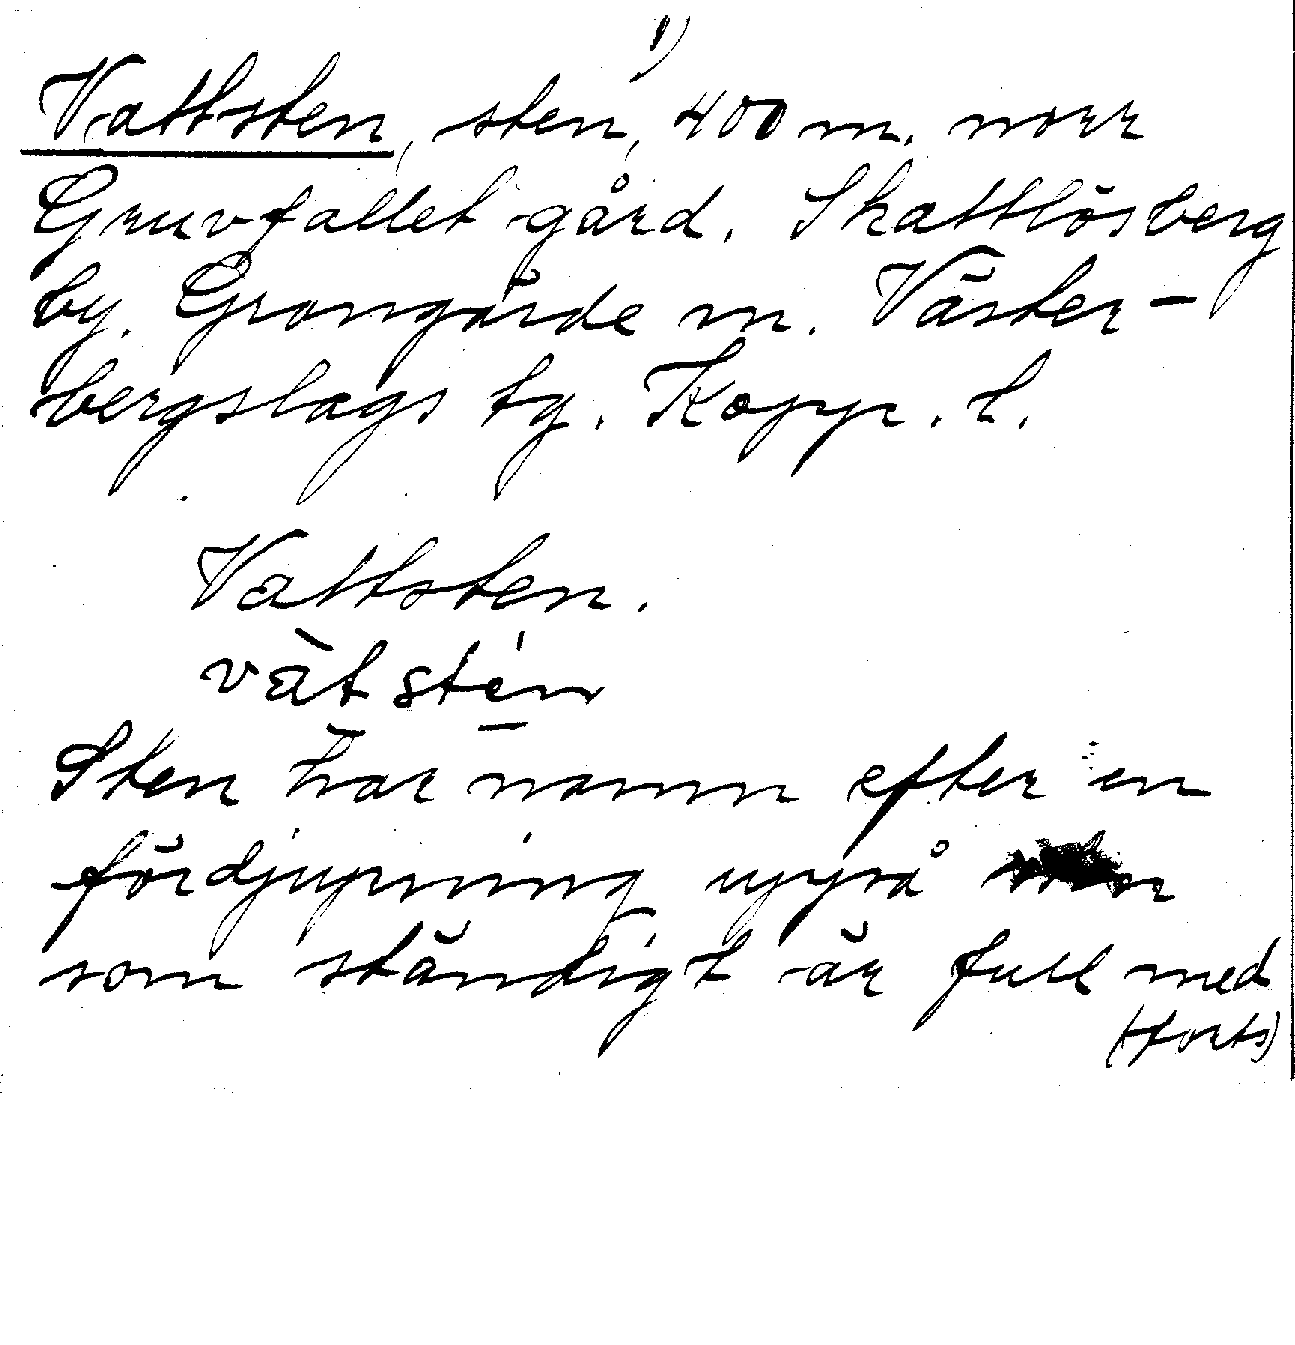 1)
Vattsten, sten, 400 m. norr
Gruvfallet gård. Skattlösberg
by. Grangärde sn. Väster-
bergslags tg. Kopp. l.
Vattsten.
vàt stén
Sten har namn efter en
fördjupning uppå
som ständigt är full med
(forts)